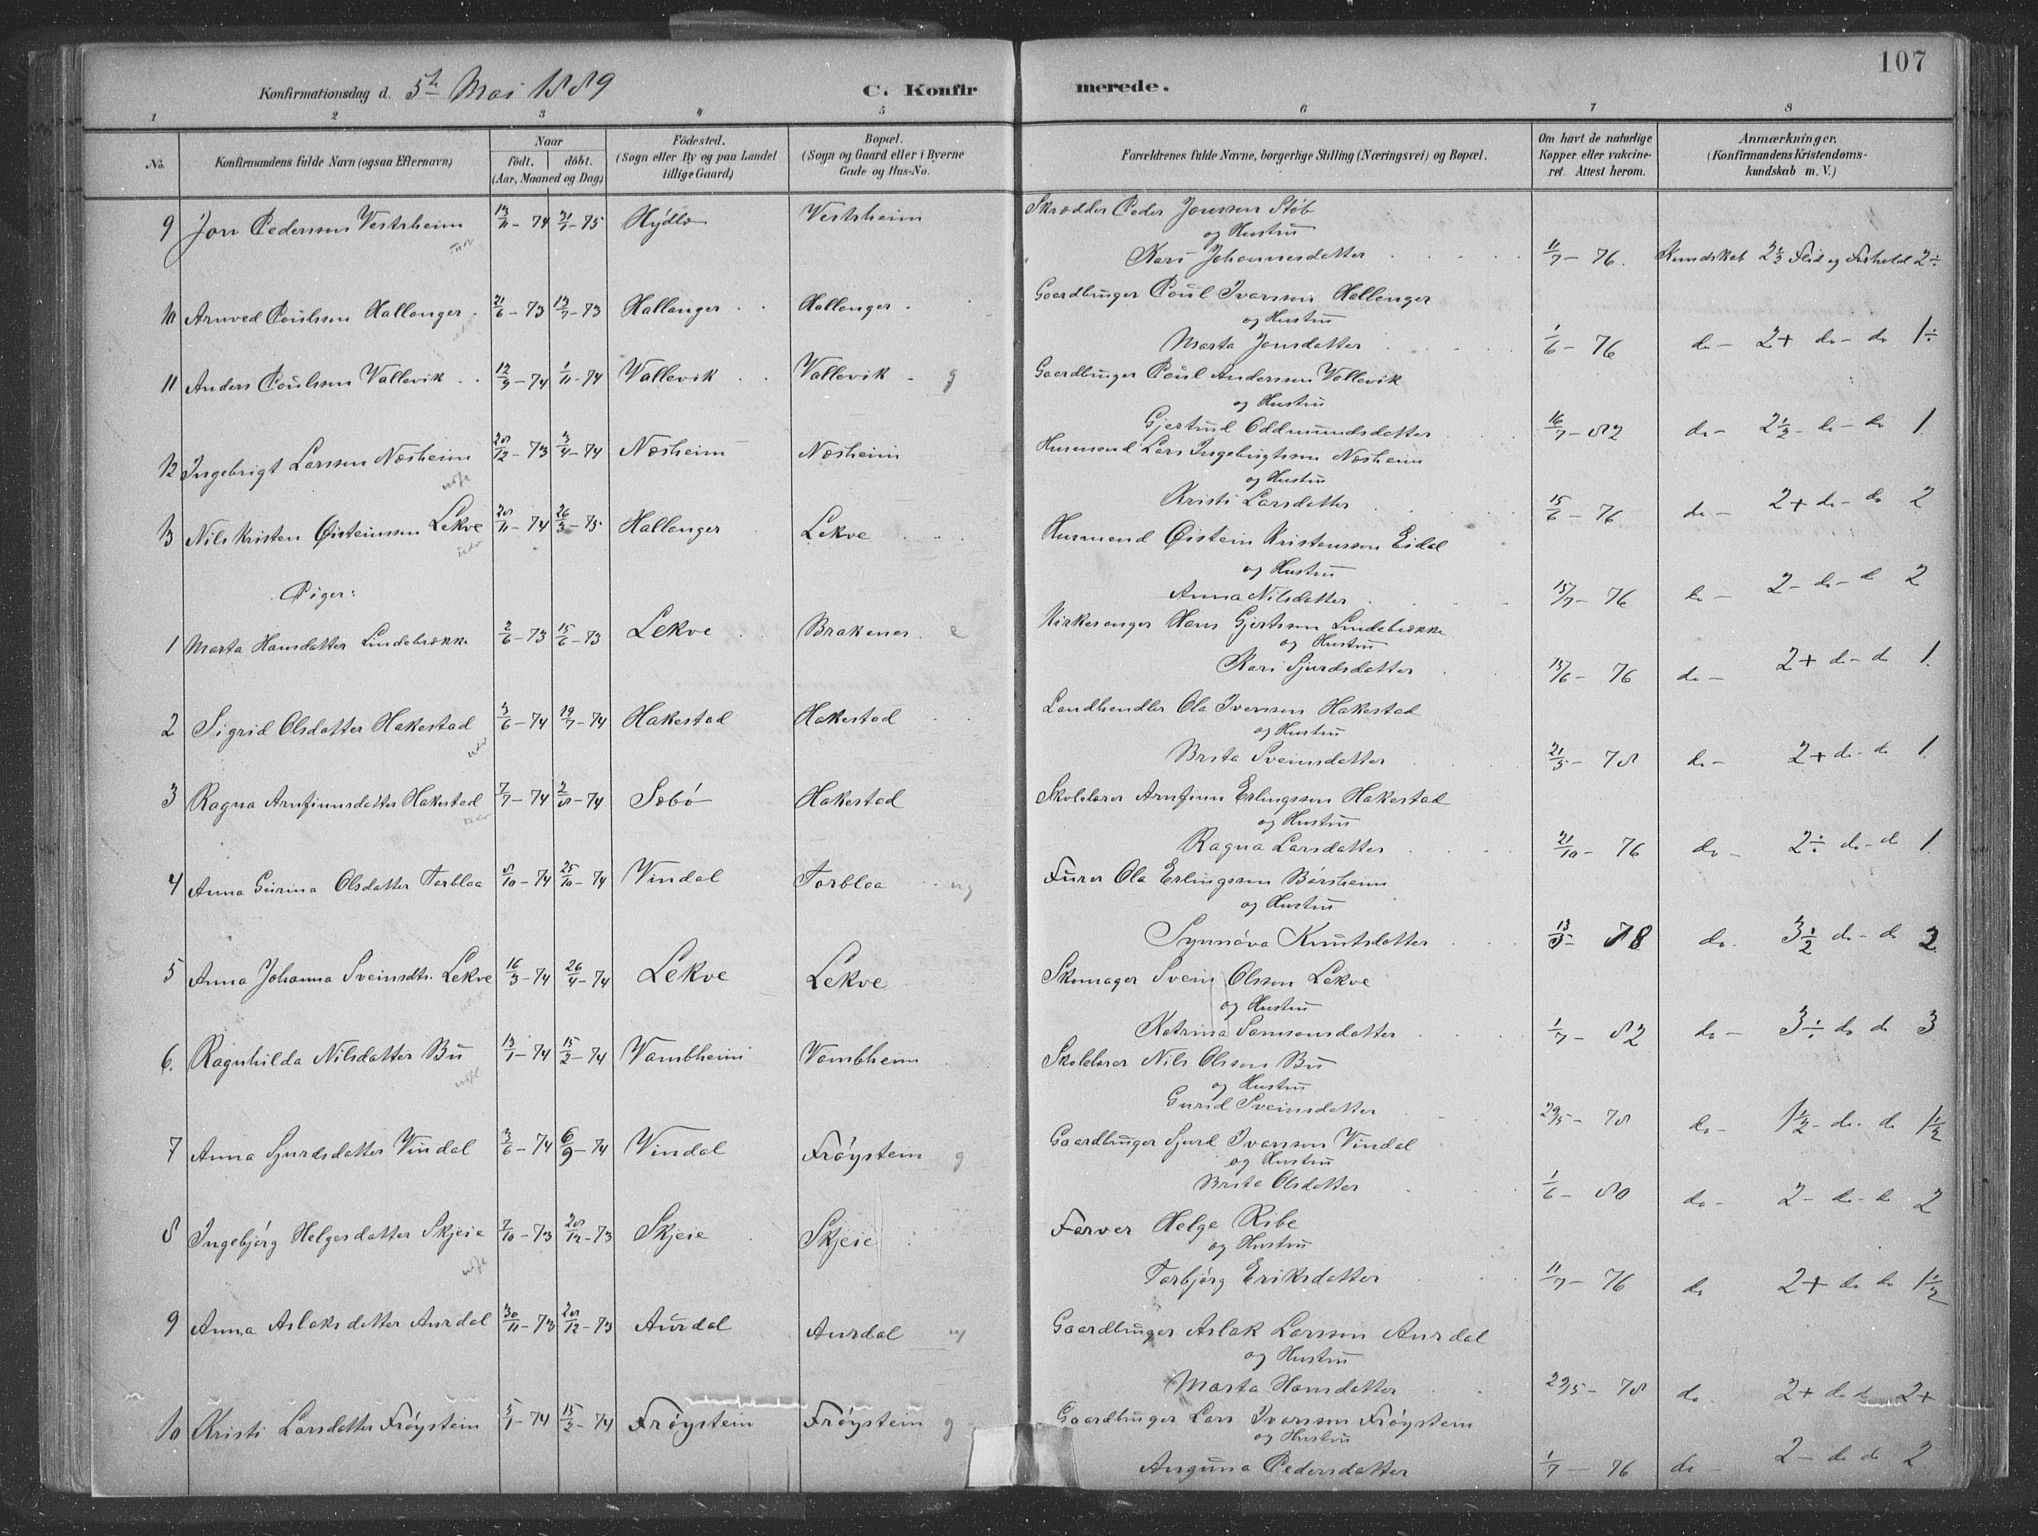 107
Konfirmationsdag d. 5te Mai 1889 C. Konfirmerede.
1 2 3 4 5 6 7 8
No. Konfirmandens fulde Navn (ogsaa Efternavn) Naar födt. döbt. (Aar, Maaned og Dag) Födested. (Sogn eller By og paa Landet tillige Gaard) Bopæl. (Sogn og Gaard eller i Byerne Gade og Hus-No. Forældrenes fulde Navne, borgerlige Stilling (Næringsvei) og Bopæl. Om havt de naturlige Kopper eller vakcineret. Attest herom. Anmærkninger. (Konfirmandens Kristendomskundskab m. V.)
9 Jon Pederssen Vestrheim 13/11 - 74 21/1 - 75 Hýdle Vestrheim Skrædder Peder Jonssen Støb
og Hustru
Kari Johannesdatter 11/7 - 76. Kundskab 2 1/2 Flid og Forhold 2 ÷
10 Arnved Poulssen Hallanger 21/6 - 73 13/7 - 73 Hallanger Hallanger Gaardbruger Poul Ivarssen Hallanger
og Hustru
Marta Jonsdatter 1/6 - 76 do - 2+ do - do 1÷
11 Anders Poulssen Vallevik 12/9 - 74 1/11 - 74 Vallevik Vallevik g Gaardbruger Poul Anderssen Vallevik
og Hustru
Gjertrud Oddmundsdatter 16/7 - 82 do - 2 1/2 - do - do 1.
12 Ingebrigt Larssen Næsheim 28/12 - 73 3/4 - 74 Næsheim Næsheim Husmand Lars Ingebrigtssen Næsheim
og Hustru
Kristi Larsdatter 15/6 - 76 do - 2+ do - do 2
13 Nils Kristen Øisteinssen Lekve 28/11 - 74 26/3 - 75 Hallanger Lekve Husmand Øistein Kristenssen Eidal
og Hustru
Anna Nilsdatter 15/7 - 76 do - 2 - do - do 2
Piger:
1 Marta Hansdatter Lindebrække 2/6 - 73 15/6 - 73 Lekve Brakenes e Kirkesanger Hans Gjertssen Lindebrække
og Hustru
Kari Sjurdsdatter 15/6 - 76 do - 2+ do - do 1.
2 Sigrid Olsdatter Hakestad 3/6 - 74 19/7 - 74 Hakestad Hakestad Landhandler Ola Iverssen Hakestad
og Hustru
Brita Sveinsdatter 21/5 - 78 do - 2+ do - do 1.
3 Ragna Arnfinnsdatter Hakestad 7/7 - 74 2/8 - 74 Sæbö Hakestad Skolelærer Arnfinn Erlingssen Hakestad
og Hustru
Ragna Larsdatter 21/10 - 76 do - 2÷ do - do 1.
4 Anna Gurina Olsdatter Torblaa 8/10 - 74 25/10 - 74 Vindal Torblaa ug Furer Ola Erlingssen Börsheim
og Hustru
Synnöva Knutsdatter 13/5 - 78 do. 3 1/2 do - do 2.
5 Anna Johanna Sveinsdtr. Lekve 16/3 - 74 26/4 - 74 Lekve Lekve Skomager Svein Olssen Lekve
og Hustru
Katrina Samsonsdatter 1/7 - 82 do - 3÷ do do 3
6. Ragnhilda Nilsdatter Bu 13/1 - 74 15/2 - 74 Vambheim Vambheim Skolelærer Nils Olssen Bu
og Hustru
Gurid Sveinsdatter 29/5 - 78 do - 1 1/2 - do - do 1 1/2
7 Anna Sjurdsdatter Vindal 3/6 - 74 6/9 - 74 Vindal Fröystein g Gaardbruger Sjurd Ivarssen Vindal
og Hustru
Brita Olsdatter 1/6 - 80 do - 2 - do - do 2
8 Ingebjörg Helgesdatter Skjeie 7/10 - 73 28/12 - 73 Skjeie Skjeie Farver Helge Ribe
og Hustru
Torbjörg Eriksdatter 11/7 - 76 do 2+ do do 1 1/2
9 Anna Aslaksdatter Aurdal 30/11 - 73 28/12 - 73 Aurdal Aurdal ug Gaardbruger Aslak Larssen Aurdal
og Hustru
Marta Hansdatter 29/5 - 78 do. 2+ do do 2+
10 Kristi Larsdatter Fröystein 5/1 - 74 15/2 - 74 Fröystein Fröystein g Gaardbruger Lars Ivarssen Fröystein
og Hustru
Anguna Pedersdatter 1/7 - 76 do - 2 - do do 2